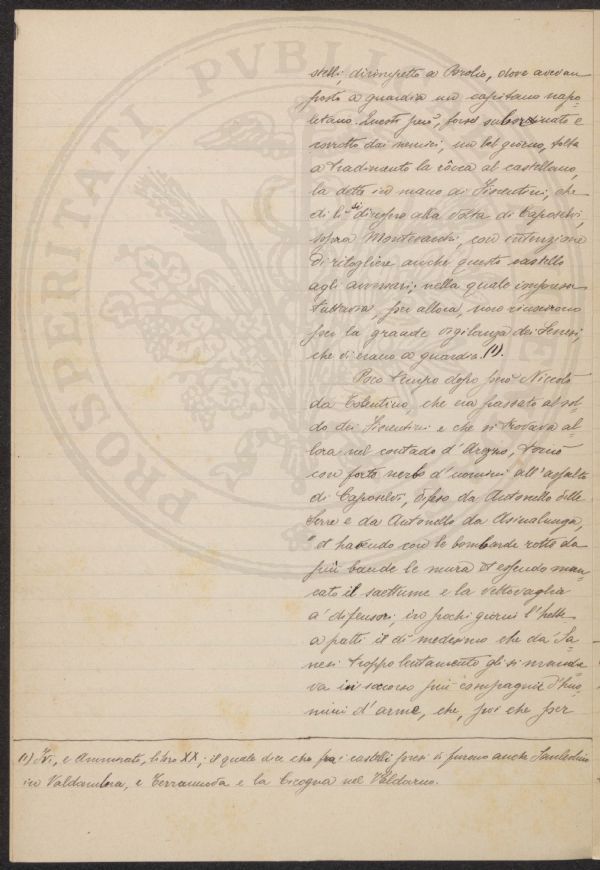 stelli, dirimpetto a Brolio, dove avevan
posto a guardia un capitano napo-
letano. Questi però, forse subordinato e
corrotto dai nemici, un bel giorno, tolta
a tradimento la rôcca al castellano,
la dette in mano ai Fiorentini, che
di lì si diressero alla volta di Caposelvi,
sopra Montevarchi, con intenzione
di ritogliere anche questo castello
agli avversari; nella quale impresa
tuttavia, per allora, non riuscirono
per la grande vigilanza dei Senesi,
che vi erano a guardia. (1).
Poco tempo dopo però Niccolò
da Tolentino, che era passato al sol-
do dei Fiorentini e che si trovava al-
lora nel contado d'Arezzo, tornò
con forte nerbo d'uomini all'assalto
di Caposelvi, difeso da Antonello dalle
Serre e da Antonello da Asinalunga,
"et havendo con le bombarde rotto da
più bande le mura et essendo man-
cato il saettume e la vettovaglia
a' difensori, in pochi giorni l'hebbe
a patti il dì medesimo che da' Sa-
nesi troppo lentamente gli si manda-
va in soccorso più compagnie d'huo-
mini d'arme, che, poi che per
(1) Ivi, e Ammirato, libro XX; il quale dice che fra i castelli presi vi furono anche Sanleolino
in Valdambra, e Terranuova e la Cicogna nel Valdarno.
PROSPERITATI PVBLI